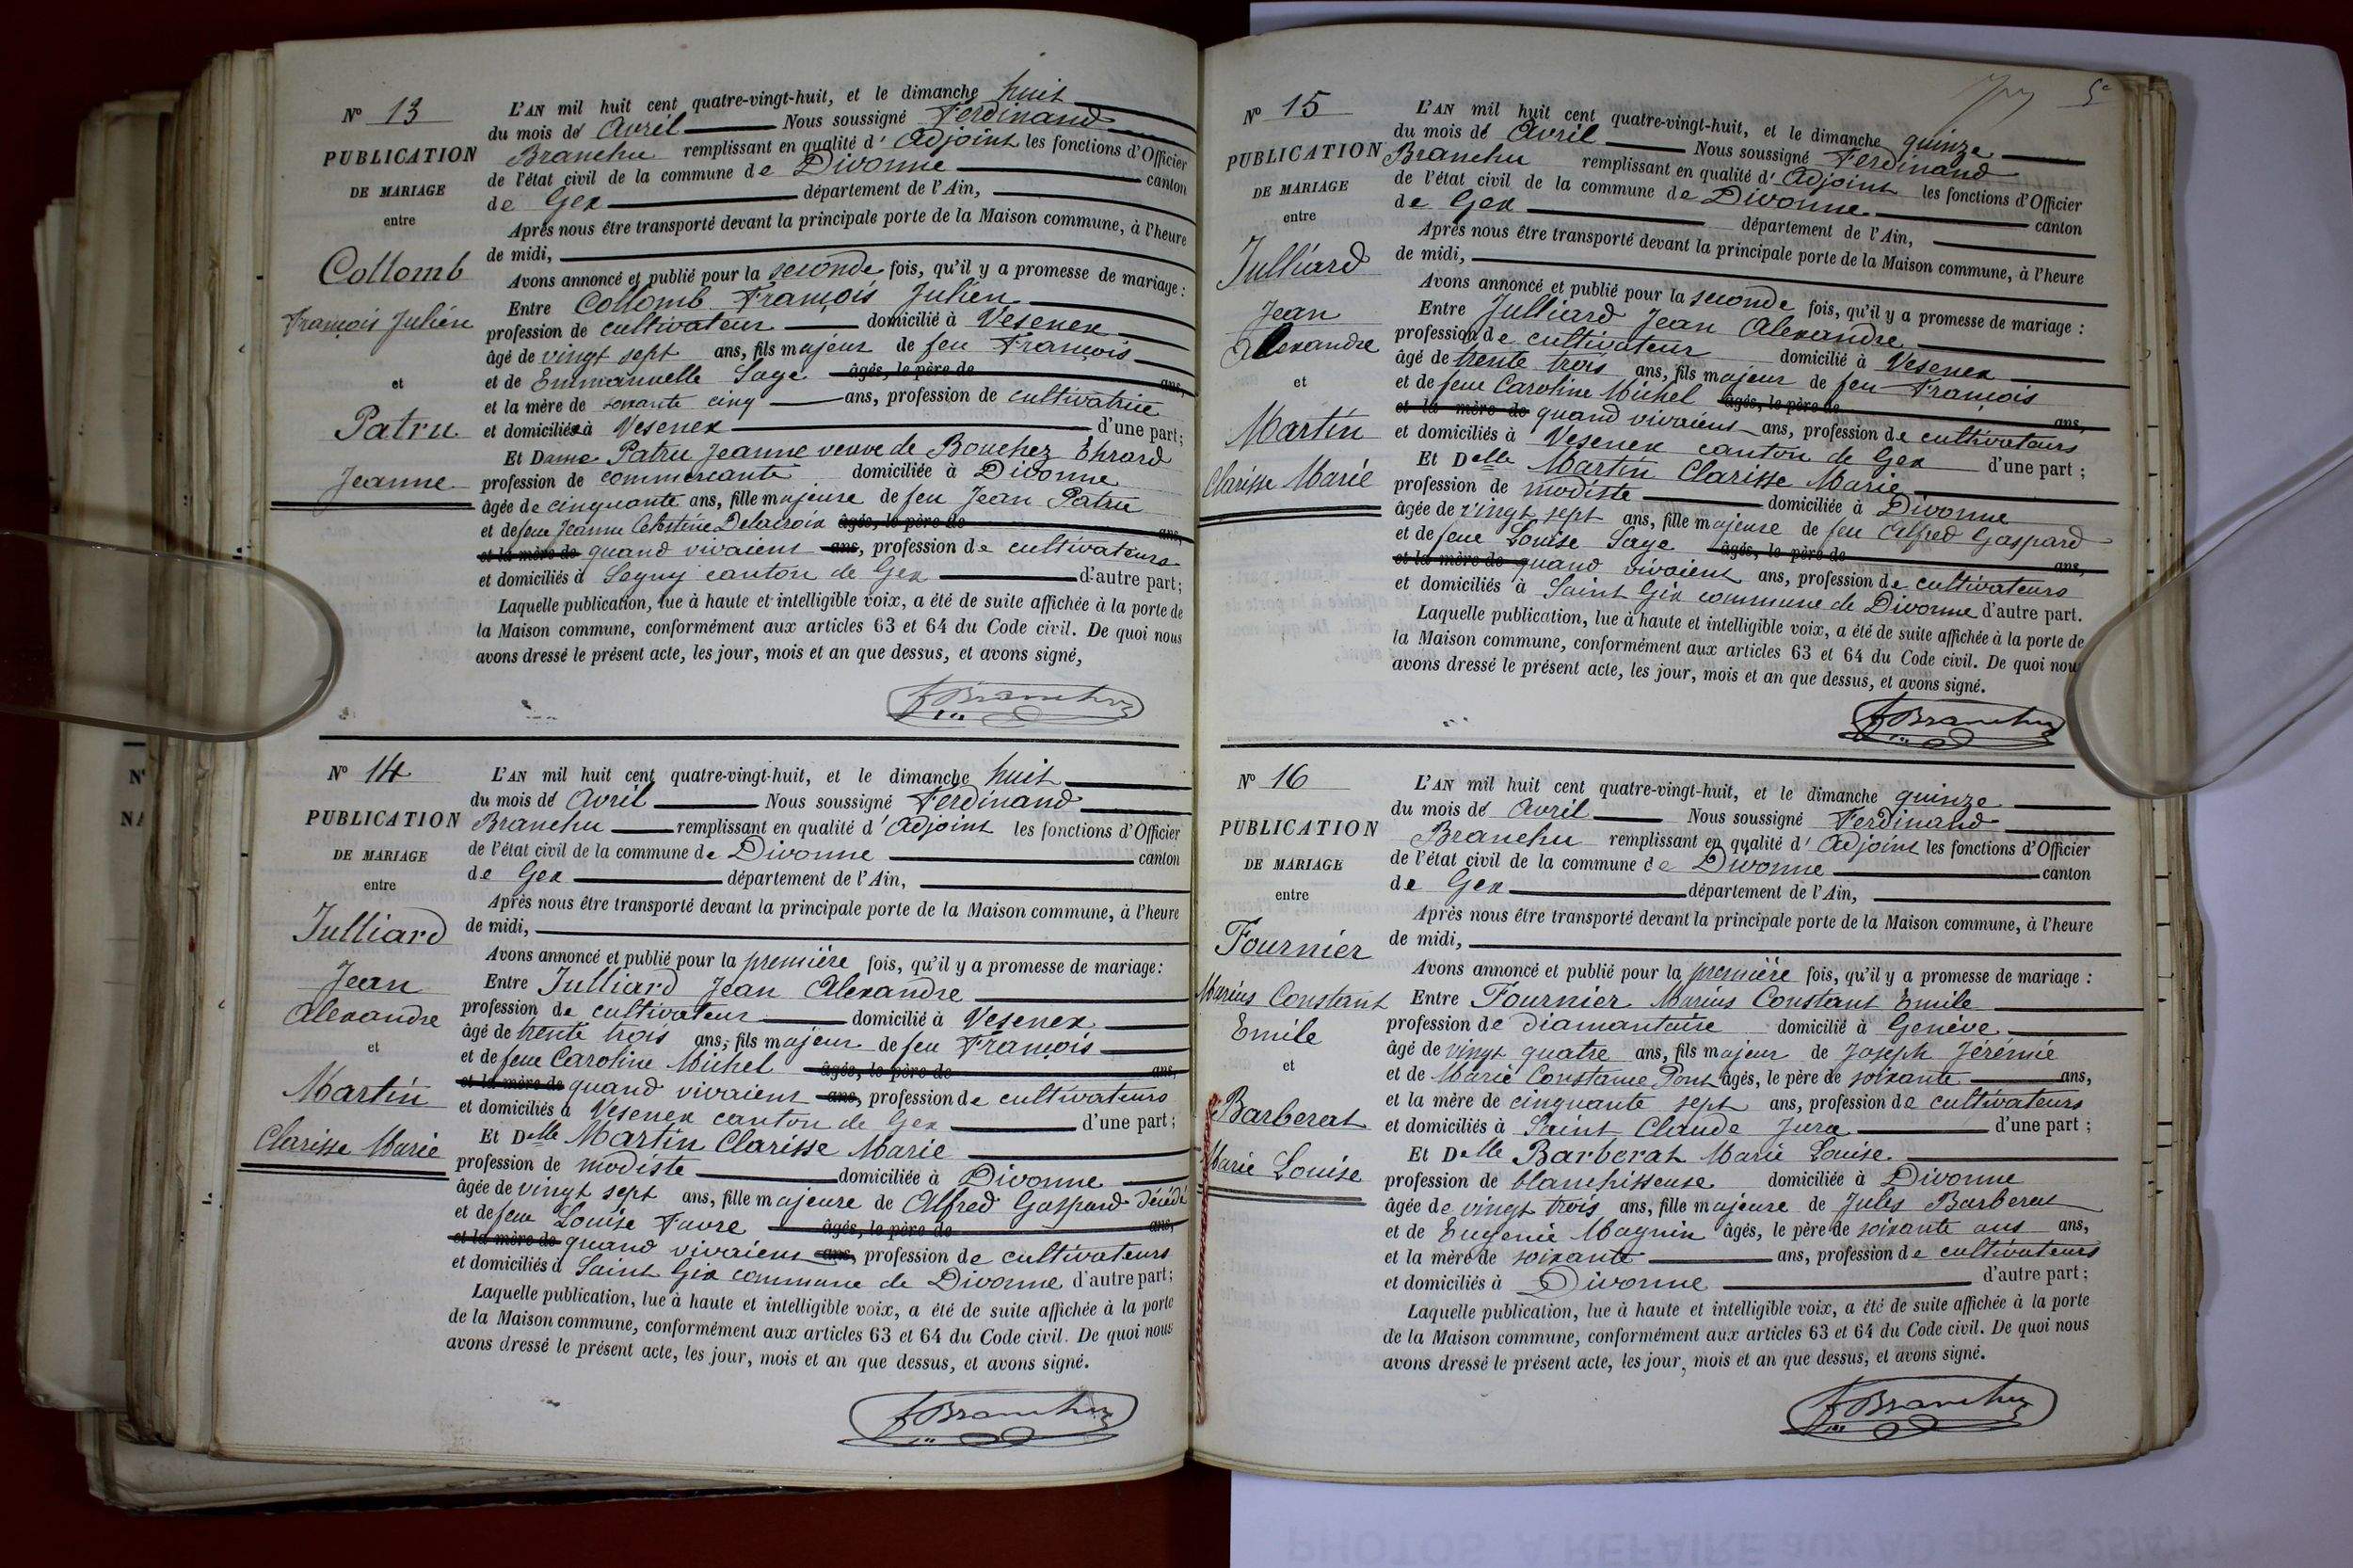 N° 13
PUBLICATION
DE MARIAGE
entre
Collomb
François Julien
et
Patru
Jeanne
L'AN mil huit cent quatre-vingt-huit, et le dimanche huit
du mois de Avril Nous soussigné Ferdinand
Branchu remplissant en qualité d'Adjoint les fonctions d'Officier
de l'état civil de la commune de Divonne canton
de Gex département de l'Ain,
Après nous être transporté devant la principale porte de la Maison commune, à l'heure
de midi,
Avons annoncé et publié pour la seconde fois, qu'il y a promesse de mariage :
Entre Collomb François Julien
profession de cultivateur domicilié à Vesenex
âgé de vingt sept ans, fils majeur de feu François
et de Emmanuelle Saye âgés, le père de ans,
et la mère de soixante cinq ans, profession de cultivatrice
et domiciliée à Vesenex d'une part ;
Et Dame Patru Jeanne veuve de Bouchez Ehrard
profession de commercante domiciliée à Divonne
âgée de cinquante ans, fille majeure de feu Jean Patru
et de feue Jeanne Celestine Delacroix âgés, le père de ans,
et la mère de quand vivaient ans, profession de cultivateurs
et domiciliés à Segny canton de Gex d'autre part ;
Laquelle publication, lue à haute et intelligible voix, a été de suite affichée à la porte de
la Maison commune, conformément aux articles 63 et 64 du Code civil. De quoi nous
avons dressé le présent acte, les jour, mois et an que dessus, et avons signé,
F Branchu
N° 14
PUBLICATION
DE MARIAGE
entre
Julliard
Jean
Alexandre
et
Martin
Clarisse Marie
L'AN mil huit cent quatre-vingt-huit, et le dimanche huit
du mois de Avril Nous soussigné Ferdinand
Branchu remplissant en qualité d'Adjoint les fonctions d'Officier
de l'état civil de la commune de Divonne canton
de Gex département de l'Ain,
Après nous être transporté devant la principale porte de la Maison commune, à l'heure
de midi,
Avons annoncé et publié pour la première fois, qu'il y a promesse de mariage :
Entre Julliard Jean Alexandre
profession de cultivateur domicilié à Vesenex
âgé de trente trois ans, fils majeur de feu François
et de feue Caroline Michel âgés, le père de ans,
et la mère de quand vivaient ans, profession de cultivateurs
et domiciliés à Vesenex canton de Gex d'une part ;
Et Delle Martin Clarisse Marie
profession de modiste domiciliée à Divonne
âgée de vingt sept ans, fille majeure de Alfred Gaspard décédé
et de feue Louise Favre âgés, le père de ans,
et la mère de quand vivaient ans, profession de cultivateurs
et domiciliés à Saint Gix commune de Divonne d'autre part ;
Laquelle publication, lue à haute et intelligible voix, a été de suite affichée à la porte
de la Maison commune, conformément aux articles 63 et 64 du Code civil. De quoi nous
avons dressé le présent acte, les jour, mois et an que dessus, et avons signé.
F Branchu
N° 15
PUBLICATION
DE MARIAGE
entre
Julliard
Jean
Alexandre
et
Martin
Clarisse Marie
L'AN mil huit cent quatre-vingt-huit, et le dimanche quinze
du mois de Avril Nous soussigné Ferdinand
Branchu remplissant en qualité d'Adjoint les fonctions d'Officier
de l'état civil de la commune de Divonne canton
de Gex département de l'Ain,
Après nous être transporté devant la principale porte de la Maison commune, à l'heure
de midi,
Avons annoncé et publié pour la seconde fois, qu'il y a promesse de mariage :
Entre Julliard Jean Alexandre
profession de cultivateur domicilié à Vesenex
âgé de trente trois ans, fils majeur de feu François
et de feue Caroline Michel âgés, le père de ans,
et la mère de quand vivaient ans, profession de cultivateurs
et domiciliés à Vesenex canton de Gex d'une part ;
Et Delle Martin Clarisse Marie
profession de modiste domiciliée à Divonne
âgée de vingt sept ans, fille majeure de feu Alfred Gaspard
et de feue Louise Saye âgés, le père de ans,
et la mère de quand vivaient ans, profession de cultivateurs
et domiciliés à Saint Gix commune de Divonne d'autre part.
Laquelle publication, lue à haute et intelligible voix, a été de suite affichée à la porte de
la Maison commune, conformément aux articles 63 et 64 du Code civil. De quoi nous
avons dressé le présent acte, les jour, mois et an que dessus, et avons signé.
F Branchu
N° 16
PUBLICATION
DE MARIAGE
entre
Fournier
Marius Constant
Emile
et
Barberat
Marie Louise
L'AN mil huit cent quatre-vingt-huit, et le dimanche quinze
du mois de Avril Nous soussigné Ferdinand
Branchu remplissant en qualité d'Adjoint les fonctions d'Officier
de l'état civil de la commune de Divonne canton
de Gex département de l'Ain,
Après nous être transporté devant la principale porte de la Maison commune, à l'heure
de midi,
Avons annoncé et publié pour la première fois, qu'il y a promesse de mariage :
Entre Fournier Marius Constant Emile
profession de diamantaire domicilié à Genève
âgé de vingt quatre ans, fils majeur de Joseph Jérémie
et de Marie Constance Pont âgés, le père de soixante ans,
et la mère de cinquante sept ans, profession de cultivateurs
et domiciliés à Saint Claude Jura d'une part ;
Et Delle Barberat Marie Louise
profession de blanchisseuse domiciliée à Divonne
âgée de vingt trois ans, fille majeure de Jules Barberat
et de Eugenie Magnin âgés, le père de soixante ans ans,
et la mère de soixante ans, profession de cultivateurs
et domiciliés à Divonne d'autre part ;
Laquelle publication, lue à haute et intelligible voix, a été de suite affichée à la porte
de la Maison commune, conformément aux articles 63 et 64 du Code civil. De quoi nous
avons dressé le présent acte, les jour, mois et an que dessus, et avons signé.
F Branchu